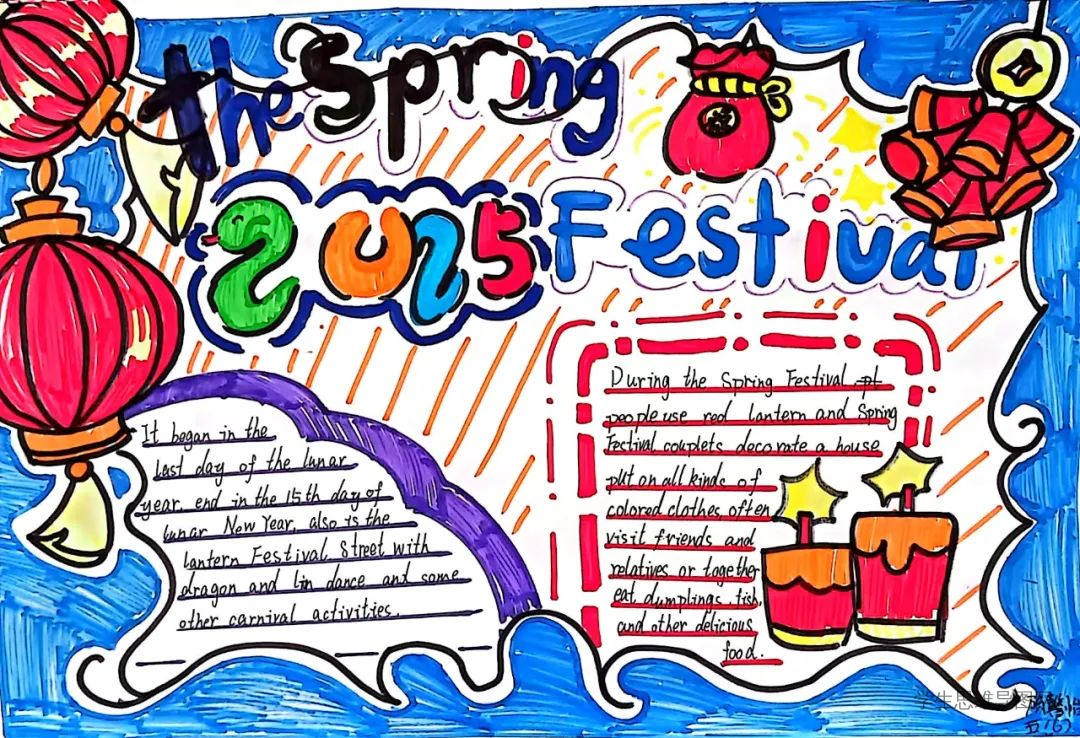 the Spring
2025 Festival
It began in the
last day of the lunar
year. end in the 15th day of
lunar New Year. also is the
lantern Festival Street with
dragon and lin dance and some
other carnival activities.
During the Spring Festival pt
people use red lantern and Spring
Festival couplets decorate a house
put on all kinds of
colored clothes often
visit friends and
relatives or together
eat dumplings. fish,
and other delicious
food.
学生思维导图